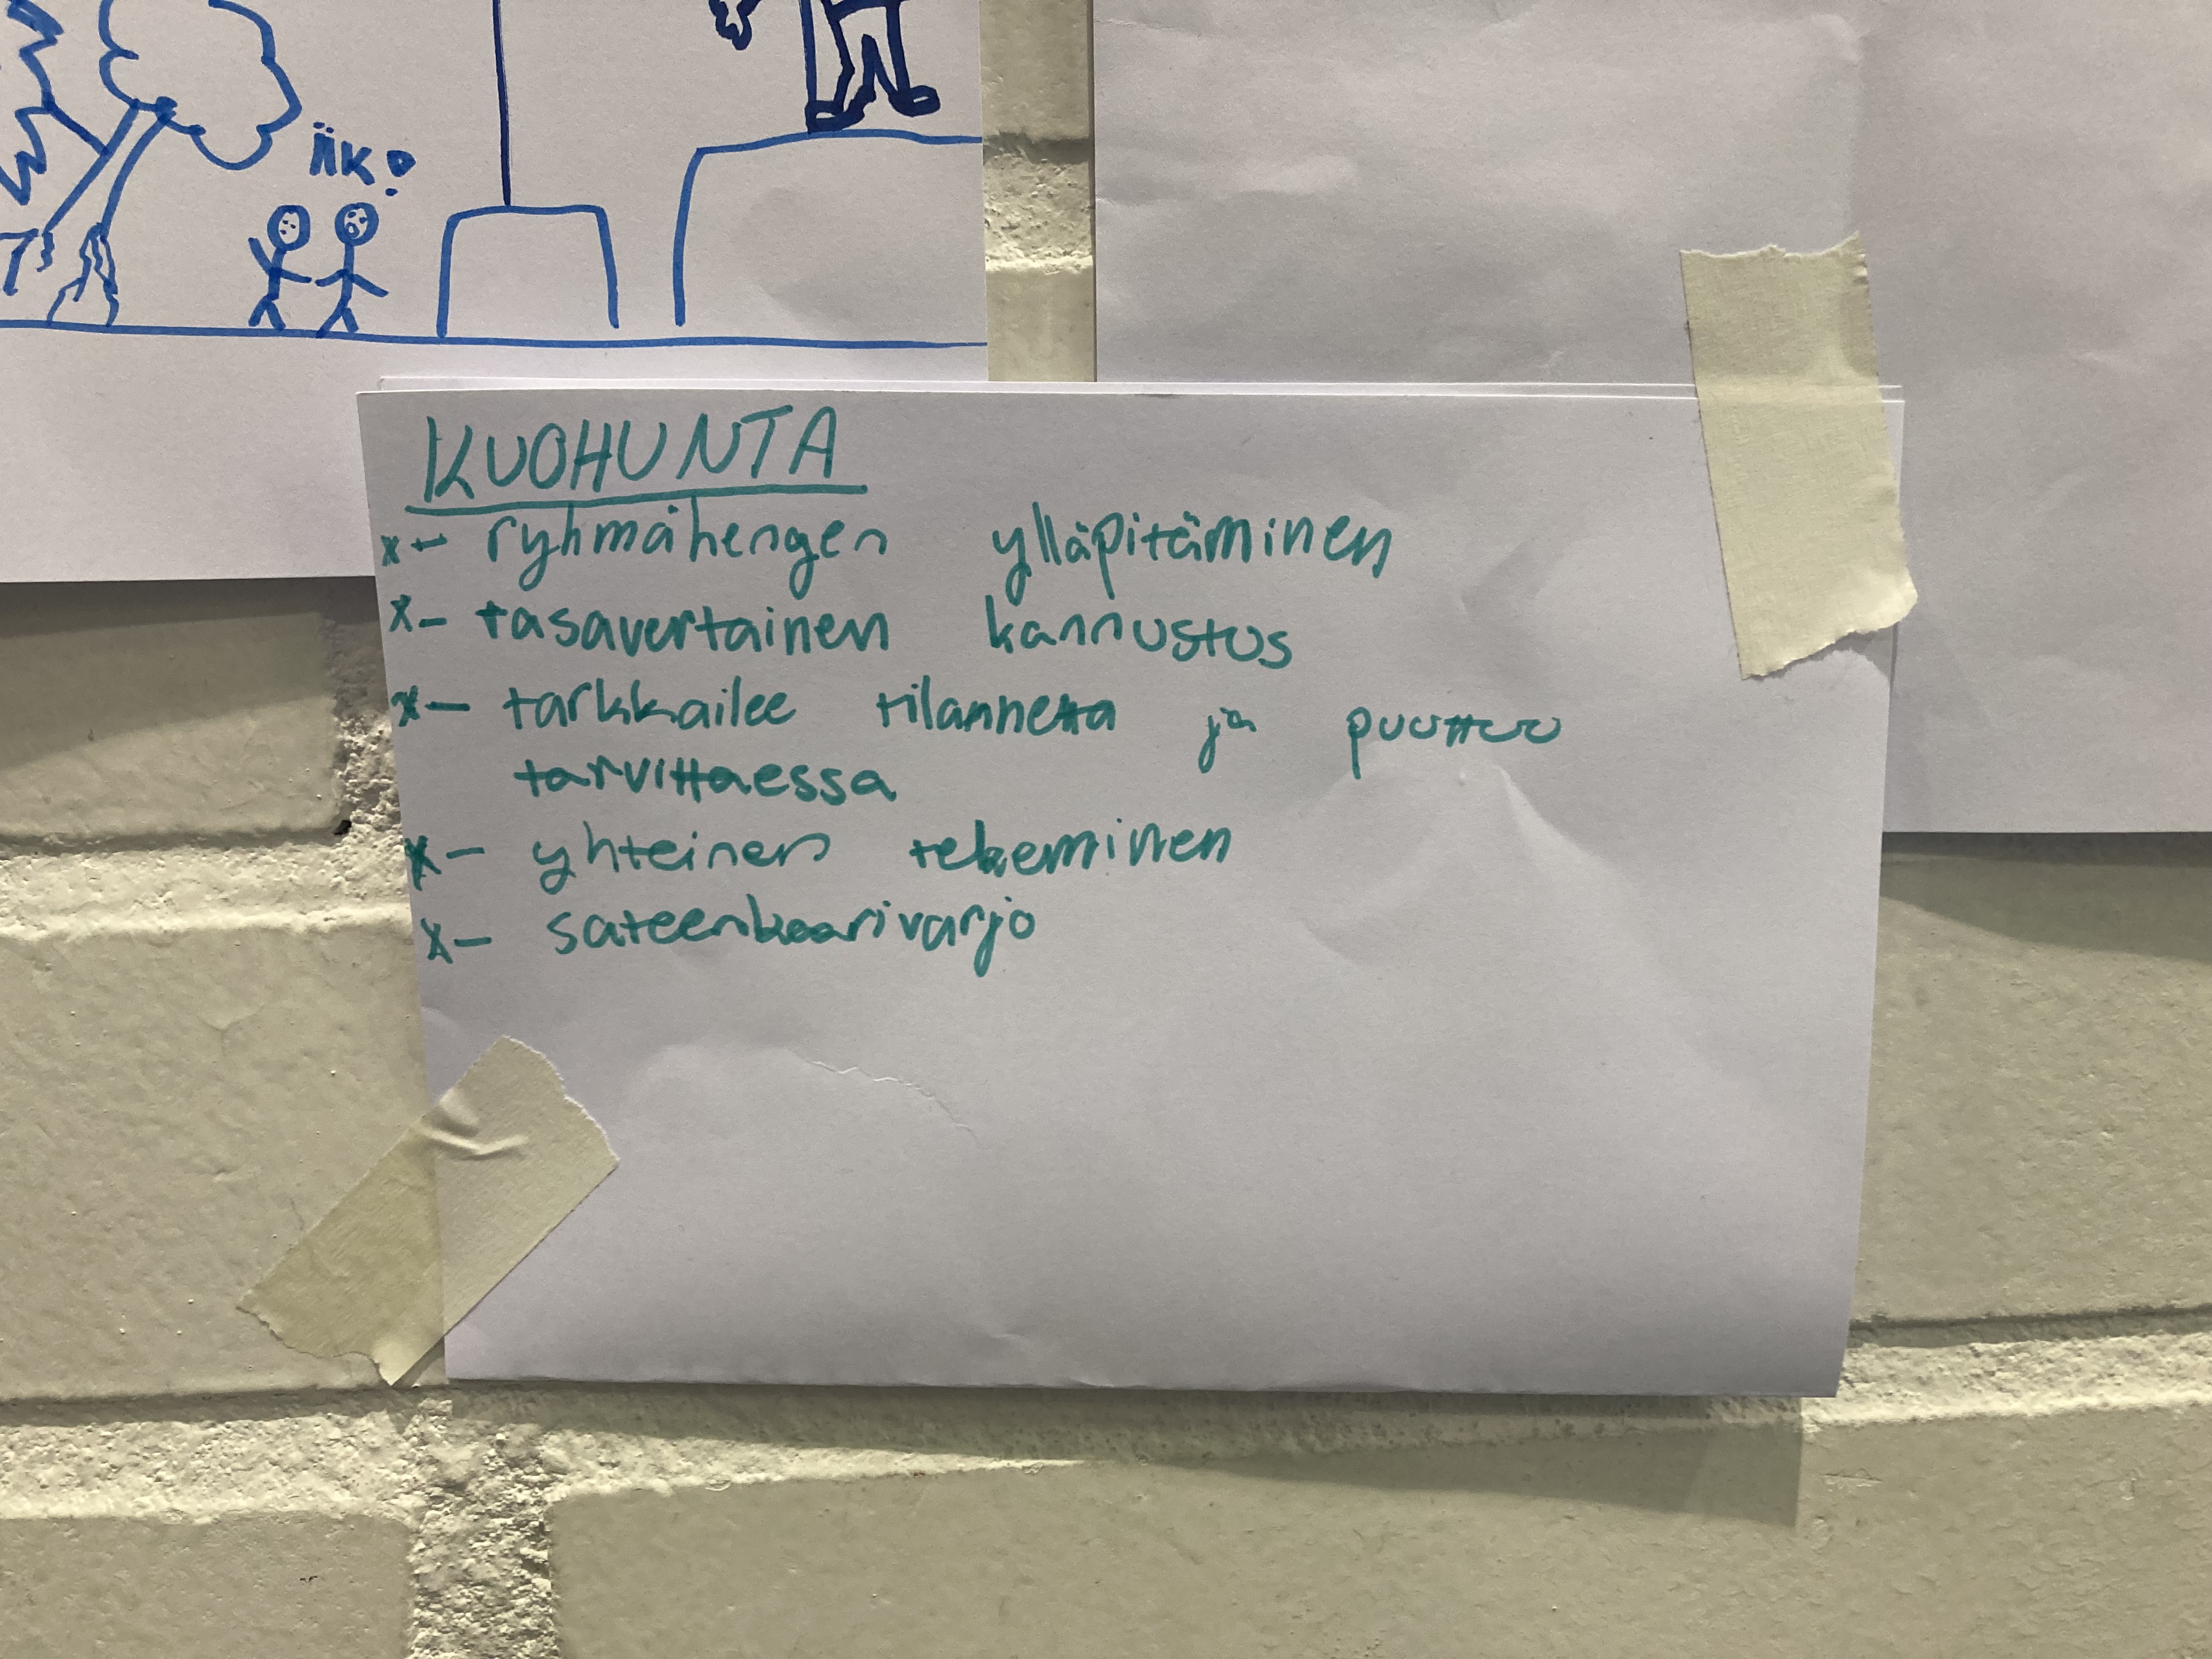 IIK!
KUOHUNTA
x- ryhmähengen ylläpitäminen
x- tasavertainen kannustus
x- tarkkailee tilannetta ja puuttuu
tarvittaessa
x- yhteinen tekeminen
x- sateenkaarivarjo